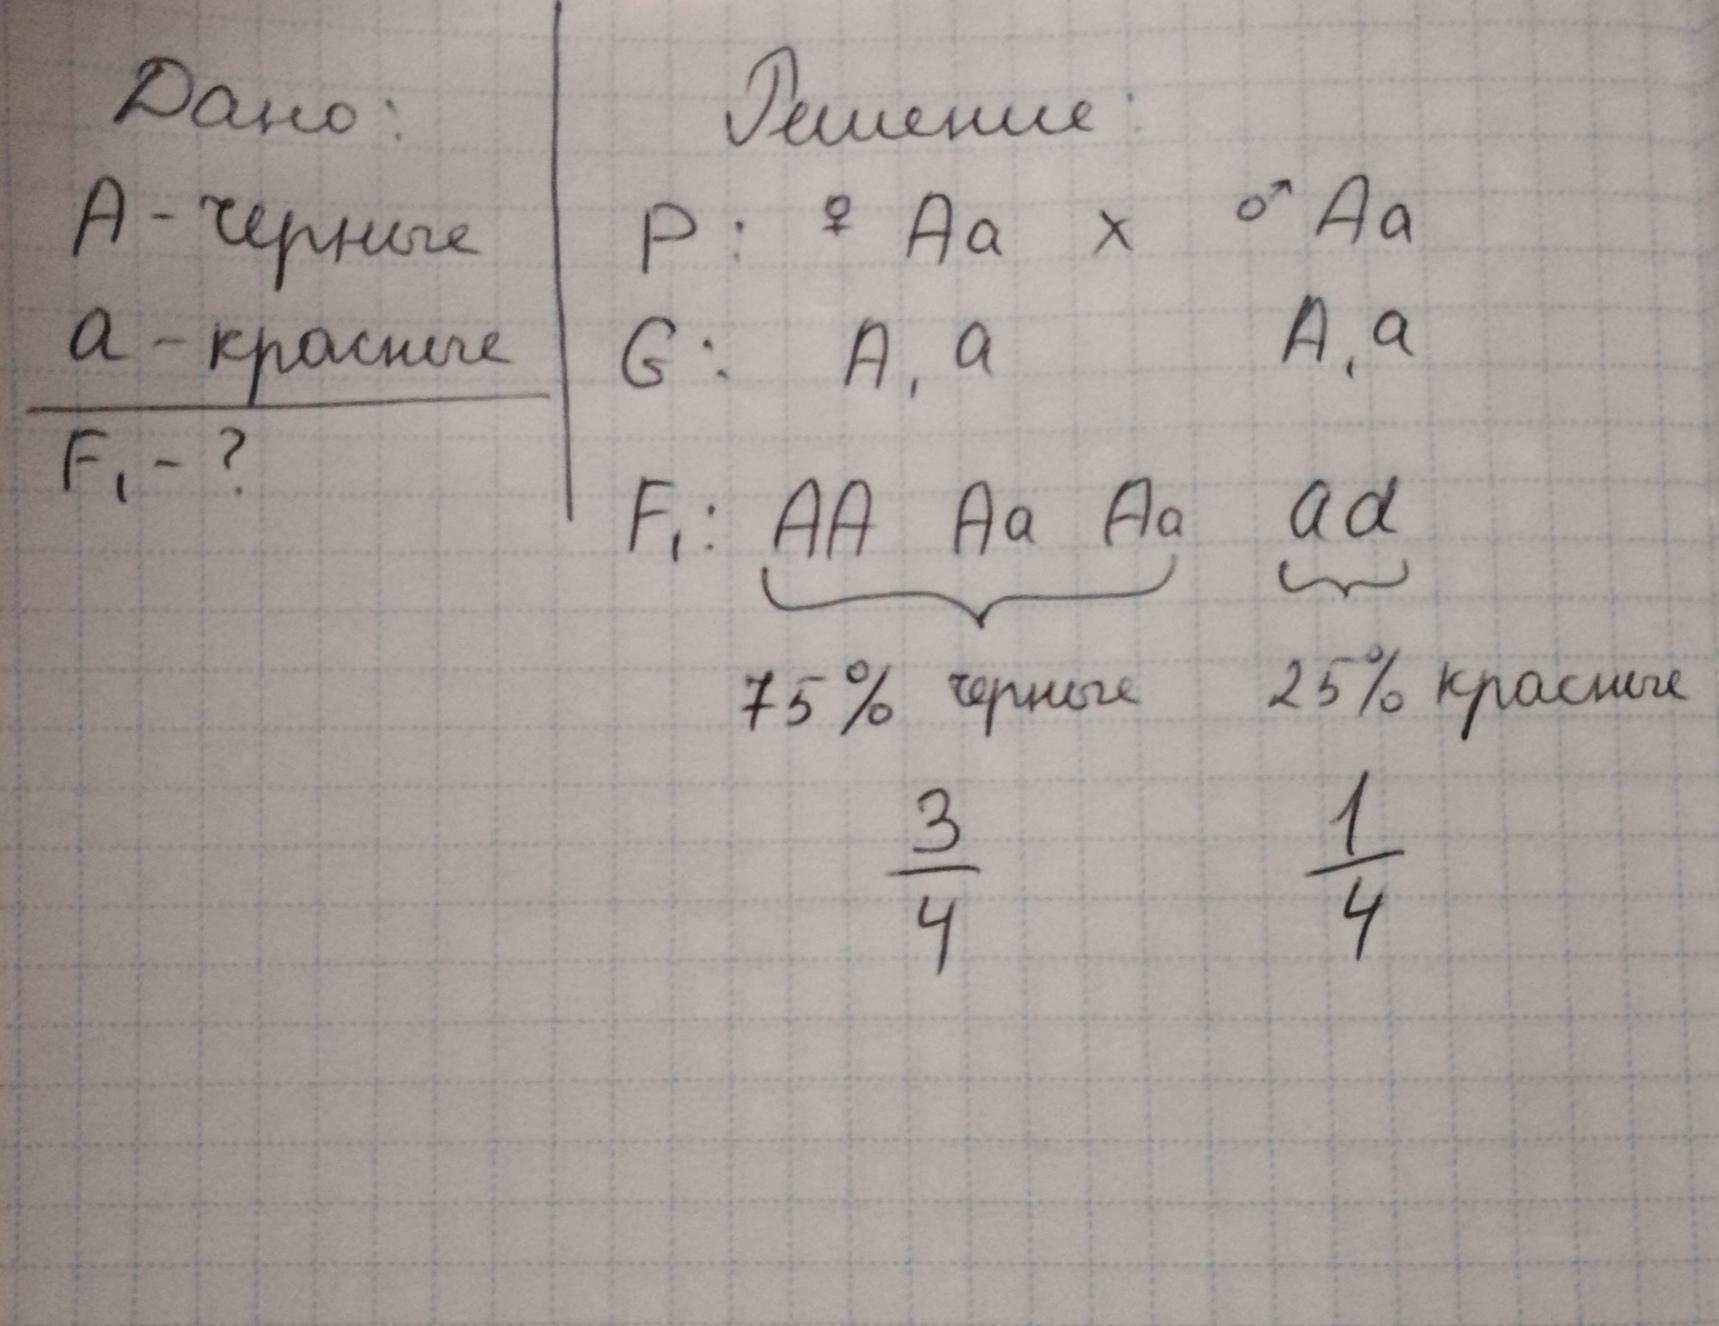 Дано:
A - черные
a - красные
F₁ - ?
Решение:
P: ♀ Aa x ♂ Aa
G: A, a A, a
F₁: AA Aa Aa aa
75% черные 25% красные
3/4 1/4